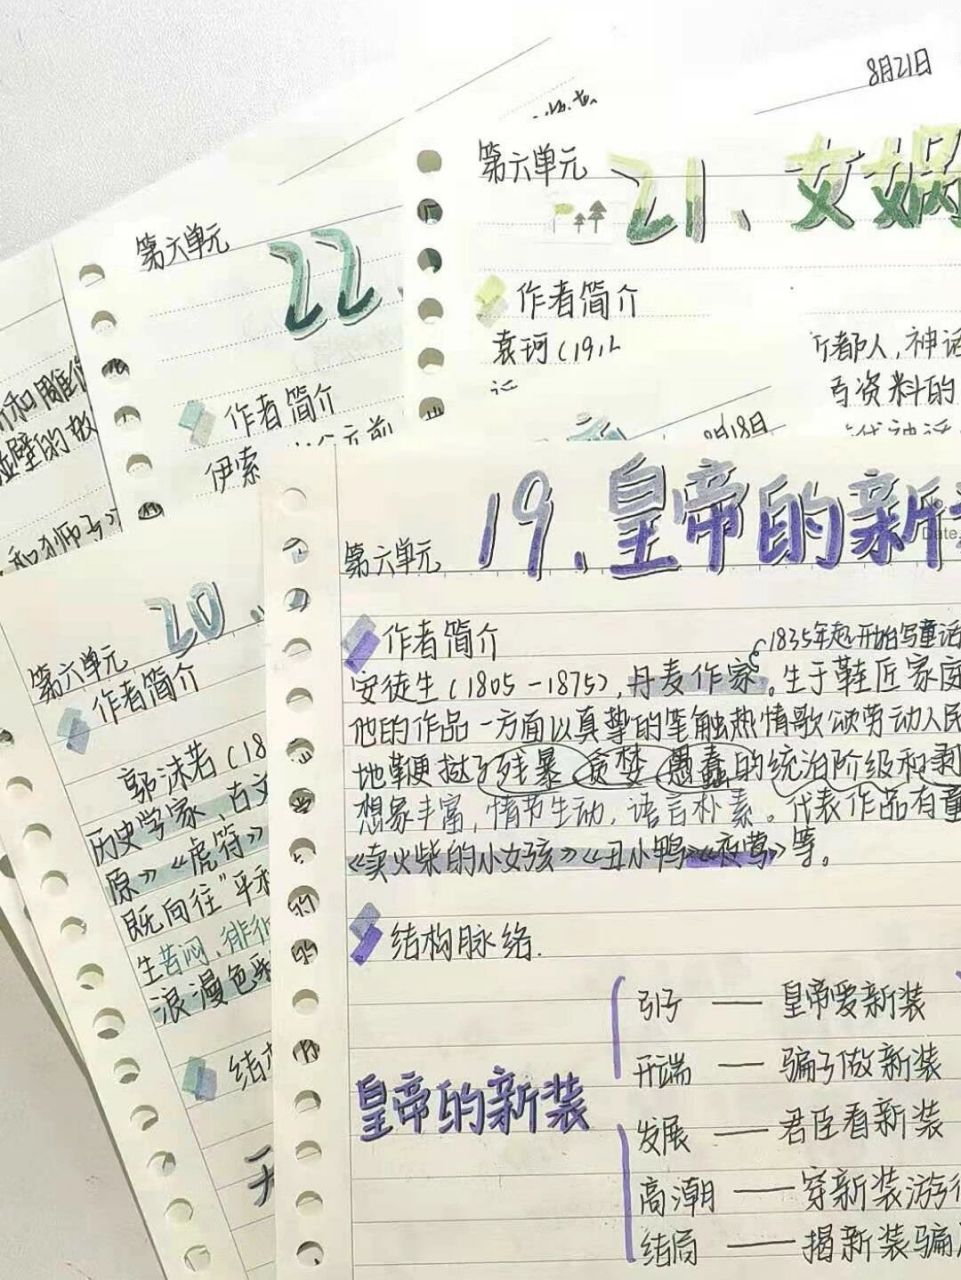 8月21日
第六单元
21、女娲
作者简介
袁珂(191
都人,神话
资料的
第六单元
22
作者简介
伊索
公元前
和雕像
8月18日
第六单元
19、皇帝的新
作者简介
1835年起开始写童话
安徒生(1805-1875),丹麦作家。生于鞋匠家庭
他的作品一方面以真挚的笔触热情歌颂劳动人民
地鞭挞了残暴 贪婪 愚蠢的统治阶级和剥
想象丰富,情节生动,语言朴素。代表作品有童
《卖火柴的小女孩》《丑小鸭》《夜莺》等。
结构脉络.
皇帝的新装
引子 — 皇帝爱新装
开端 — 骗子做新装
发展 — 君臣看新装
高潮 — 穿新装游行
结局 — 揭新装骗
第六单元
20
作者简介
郭沫若(18
历史学家、古文
原》《虎符》
既向往"平和
生苦闷、徘徊
浪漫色彩
结构
天